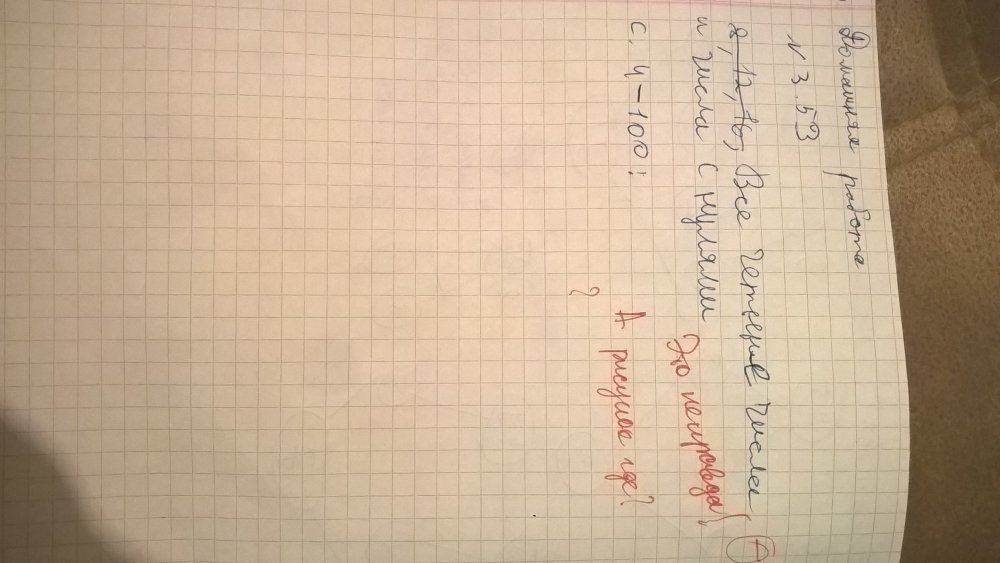 Домашняя работа
№ 3.53
8, 12, 16, Все четные числа
и числа с нулями Это неправда!
с. 4-100; А рисунок где?
?